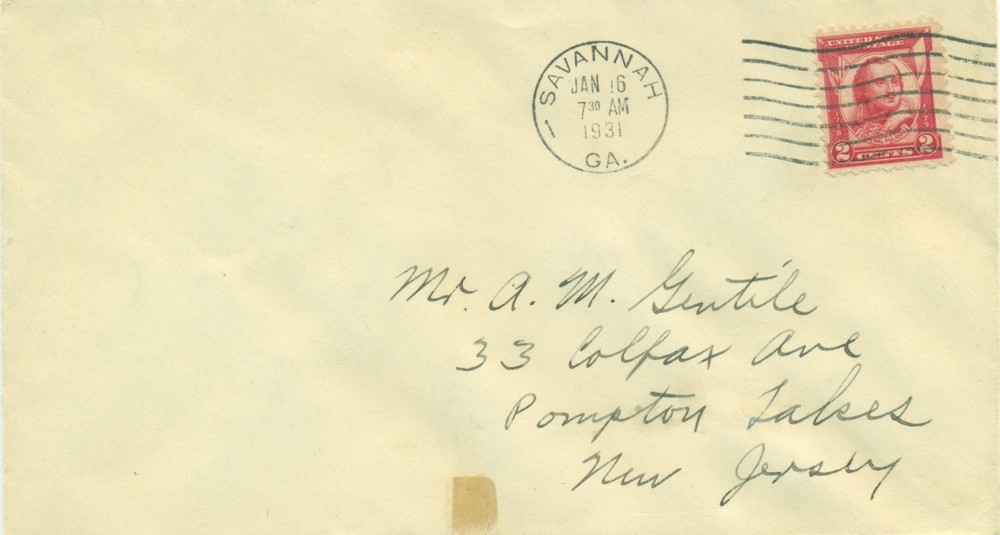 SAVANNAH
JAN 16
7 30 AM
1931
GA.
1
UNITED STATES POSTAGE
2 CENTS 2
Mr. A. M. Gentile
33 Colfax Ave
Pompton Lakes
New Jersey